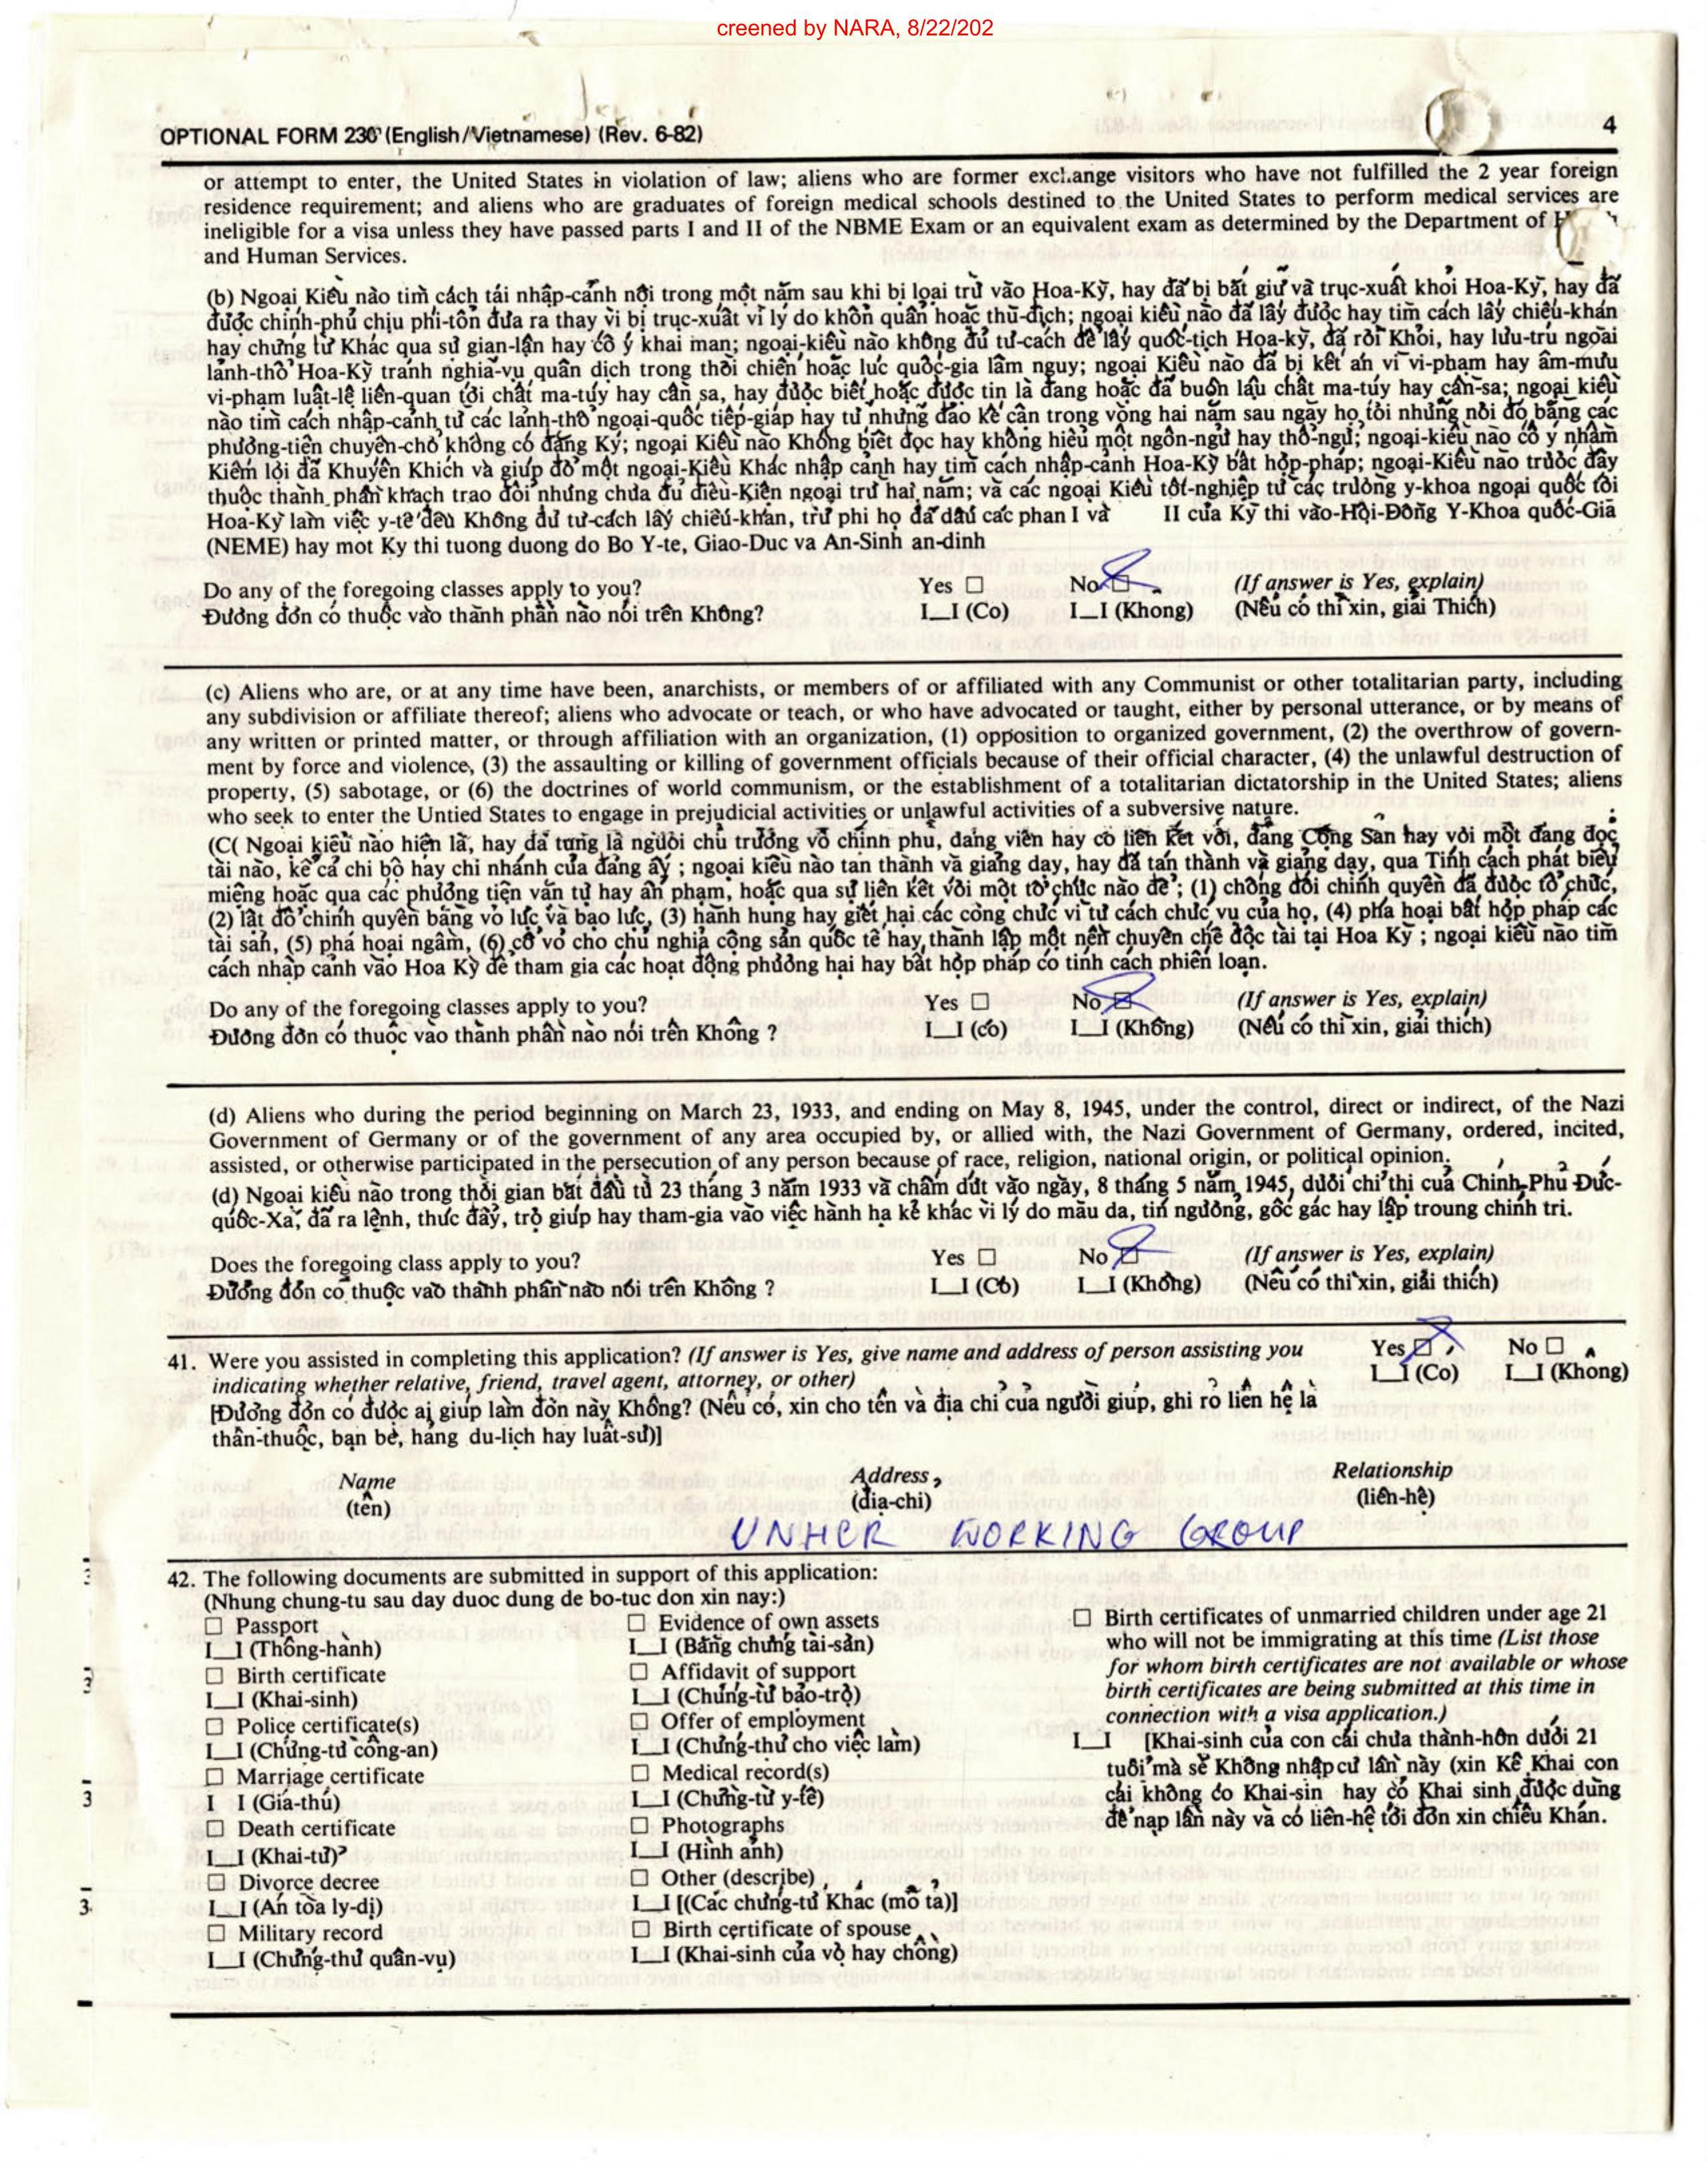 creened by NARA, 8/22/202
OPTIONAL FORM 230 (English/Vietnamese) (Rev. 6-82) 4
or attempt to enter, the United States in violation of law; aliens who are former exchange visitors who have not fulfilled the 2 year foreign
residence requirement; and aliens who are graduates of foreign medical schools destined to the United States to perform medical services are
ineligible for a visa unless they have passed parts I and II of the NBME Exam or an equivalent exam as determined by the Department of
and Human Services.
(b) Ngoại Kiều nào tìm cách tái nhập-cảnh nội trong một năm sau khi bị loại trừ vào Hoa-Kỳ, hay đã bị bắt giữ và trục-xuất khỏi Hoa-Kỳ, hay đã
được chính-phủ chịu phí-tổn đưa ra thay vì bị trục-xuất vì lý do khốn quẫn hoặc thù-địch; ngoại kiều nào đã lấy được hay tìm cách lấy chiếu-khán
hay chứng từ Khác qua sự gian-lận hay cố ý khai man; ngoại-kiều nào không đủ tư-cách để lấy quốc-tịch Hoa-kỳ, đã rời Khỏi, hay lưu-trú ngoài
lãnh-thổ Hoa-Kỳ tránh nghĩa-vụ quân dịch trong thời chiến hoặc lúc quốc-gia lâm nguy; ngoại Kiều nào đã bị kết án vì vi-phạm hay âm-mưu
vi-phạm luật-lệ liên-quan tới chất ma-túy hay cần sa, hay được biết hoặc được tin là đang hoặc đã buôn lậu chất ma-túy hay cần-sa; ngoại kiều
nào tìm cách nhập-cảnh từ các lãnh-thổ ngoại-quốc tiếp-giáp hay từ những đảo kế cận trong vòng hai năm sau ngày họ tới những nơi đó bằng các
phương-tiện chuyên-chở không có đăng Ký; ngoại Kiều nào Không biết đọc hay không hiểu một ngôn-ngữ hay thổ-ngữ; ngoại-kiều nào cố ý nhằm
Kiếm lời đã Khuyến Khích và giúp đỡ một ngoại-Kiều Khác nhập cảnh hay tìm cách nhập-cảnh Hoa-Kỳ bất hợp-pháp; ngoại-Kiều nào trước đây
thuộc thành phần khách trao đổi nhưng chưa đủ điều-Kiện ngoại trừ hai năm; và các ngoại Kiều tốt-nghiệp từ các trường y-khoa ngoại quốc tới
Hoa-Kỳ làm việc y-tế đều Không đủ tư-cách lấy chiếu-khán, trừ phi họ đã đậu các phan I và II của Kỳ thi vào-Hội-Đồng Y-Khoa quốc-Gia
(NEME) hay mot Ky thi tuong duong do Bo Y-te, Giao-Duc va An-Sinh an-dinh
Do any of the foregoing classes apply to you? Yes ☐ No ☒ (If answer is Yes, explain)
Đương đơn có thuộc vào thành phần nào nói trên Không? I__I (Co) I__I (Khong) (Nếu có thì xin, giải Thích)
(c) Aliens who are, or at any time have been, anarchists, or members of or affiliated with any Communist or other totalitarian party, including
any subdivision or affiliate thereof; aliens who advocate or teach, or who have advocated or taught, either by personal utterance, or by means of
any written or printed matter, or through affiliation with an organization, (1) opposition to organized government, (2) the overthrow of govern-
ment by force and violence, (3) the assaulting or killing of government officials because of their official character, (4) the unlawful destruction of
property, (5) sabotage, or (6) the doctrines of world communism, or the establishment of a totalitarian dictatorship in the United States; aliens
who seek to enter the Untied States to engage in prejudicial activities or unlawful activities of a subversive nature.
(C( Ngoại kiều nào hiện là, hay đã từng là người chủ trương vô chính phủ, đảng viên hay có liên kết với, đảng Cộng Sản hay với một đảng độc
tài nào, kể cả chi bộ hay chi nhánh của đảng ấy ; ngoại kiều nào tán thành và giảng dạy, hay đã tán thành và giảng dạy, qua Tính cách phát biểu
miệng hoặc qua các phương tiện văn tự hay ấn phẩm, hoặc qua sự liên kết với một tổ chức nào để ; (1) chống đối chính quyền đã được tổ chức,
(2) lật đổ chính quyền bằng võ lực và bạo lực, (3) hành hung hay giết hại các công chức vì tư cách chức vụ của họ, (4) phá hoại bất hợp pháp các
tài sản, (5) phá hoại ngầm, (6) cổ võ cho chủ nghĩa cộng sản quốc tế hay thành lập một nền chuyên chế độc tài tại Hoa Kỳ ; ngoại kiều nào tìm
cách nhập cảnh vào Hoa Kỳ để tham gia các hoạt động phương hại hay bất hợp pháp có tính cách phiến loạn.
Do any of the foregoing classes apply to you? Yes ☐ No ☒ (If answer is Yes, explain)
Đương đơn có thuộc vào thành phần nào nói trên Không ? I__I (có) I__I (Không) (Nếu có thì xin, giải thích)
(d) Aliens who during the period beginning on March 23, 1933, and ending on May 8, 1945, under the control, direct or indirect, of the Nazi
Government of Germany or of the government of any area occupied by, or allied with, the Nazi Government of Germany, ordered, incited,
assisted, or otherwise participated in the persecution of any person because of race, religion, national origin, or political opinion.
(d) Ngoại kiều nào trong thời gian bắt đầu từ 23 tháng 3 năm 1933 và chấm dứt vào ngày, 8 tháng 5 năm 1945, dưới chỉ thị của Chính-Phủ Đức-
quốc-Xã, đã ra lệnh, thức đẩy, trợ giúp hay tham-gia vào việc hành hạ kẻ khác vì lý do mầu da, tín ngưỡng, gốc gác hay lập troung chính trị.
Does the foregoing class apply to you? Yes ☐ No ☒ (If answer is Yes, explain)
Đương đơn có thuộc vào thành phần nào nói trên Không ? I__I (Có) I__I (Không) (Nếu có thì xin, giải thích)
41. Were you assisted in completing this application? (If answer is Yes, give name and address of person assisting you Yes ☒ No ☐
indicating whether relative, friend, travel agent, attorney, or other) I__I (Co) I__I (Không)
[Đương đơn có được ai giúp làm đơn này Không? (Nếu có, xin cho tên và địa chỉ của người giúp, ghi rõ liên hệ là
thân-thuộc, bạn bè, hãng du-lịch hay luật-sư)]
Name Address Relationship
(tên) (địa-chỉ) (liên-hệ)
UNHCR WORKING GROUP
42. The following documents are submitted in support of this application:
(Nhung chung-tu sau day duoc dung de bo-tuc don xin nay:)
☐ Passport
I__I (Thông-hành)
☐ Birth certificate
I__I (Khai-sinh)
☐ Police certificate(s)
I__I (Chứng-từ công-an)
☐ Marriage certificate
I I (Giá-thú)
☐ Death certificate
I__I (Khai-tử)
☐ Divorce decree
I__I (Án tòa ly-dị)
☐ Military record
I__I (Chứng-thư quân-vụ)
☐ Evidence of own assets
I__I (Bằng chứng tài-sản)
☐ Affidavit of support
I__I (Chứng-từ bảo-trợ)
☐ Offer of employment
I__I (Chứng-thư cho việc làm)
☐ Medical record(s)
I__I (Chứng-từ y-tế)
☐ Photographs
I__I (Hình ảnh)
☐ Other (describe)
I__I [(Các chứng-từ Khác (mô tả)]
☐ Birth certificate of spouse
I__I (Khai-sinh của vợ hay chồng)
☐ Birth certificates of unmarried children under age 21
who will not be immigrating at this time (List those
for whom birth certificates are not available or whose
birth certificates are being submitted at this time in
connection with a visa application.)
I__I [Khai-sinh của con cái chưa thành-hôn dưới 21
tuổi mà sẽ Không nhập cư lần này (xin Kê Khai con
cái không co Khai-sin hay có Khai sinh được dùng
để nạp lần này và có liên-hệ tới đơn xin chiếu Khán.
3
3
3
3